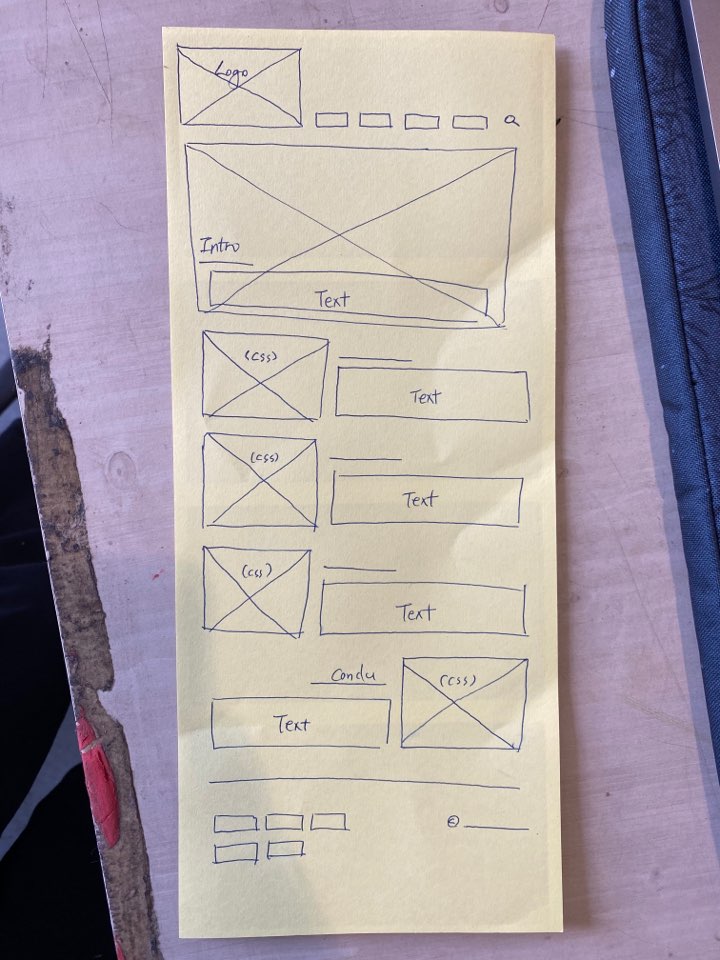 Logo
Intro
Text
(css)
Text
(css)
Text
(css)
Text
Conclu
(css)
Text
©